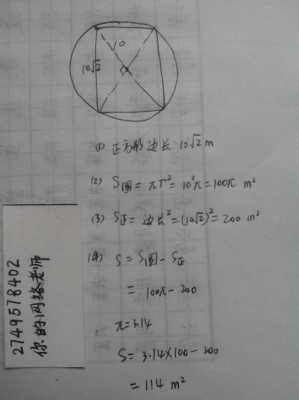 10
10√2
(1) 正方形 边长 10√2 m
(2) S圆 = πr² = 10²π = 100π m²
(3) S正 = 边长² = (10√2)² = 200 m²
(4) S = S圆 - S正
= 100π - 200
π = 3.14
S = 3.14×100 - 200
= 114 m²
2749578402
你的网络老师